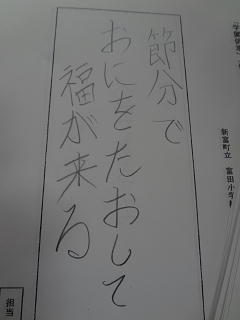 節分で
おにをたおして
福が来る
新富町立 富田小学
担当